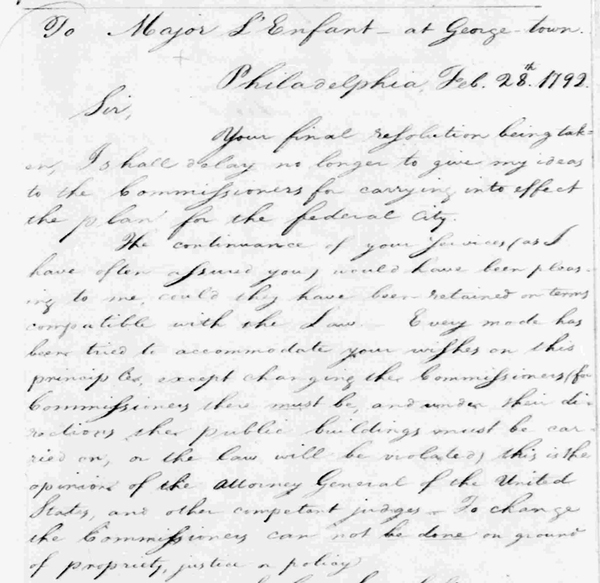 To Major L'Enfant - at George-town.
Philadelphia, Feb. 28th. 1792
Sir,
Your final resolution being tak=
en, I shall delay no longer to give my ideas
to the Commissioners for carrying into effect
the plan for the federal City.
The continuance of your services (as I
have often assured you) would have been pleas-
ing to me, could they have been retained on terms
compatible with the Law. Every mode has
been tried to accommodate your wishes on this
principle, except changing the Commissioners (for
Commissioners there must be, and under their di-
rections the public buildings must be car
ried on, or the law will be violated; this is the
opinion of the attorney General of the United
States, and other competent judges - To change
the Commissioners can not be done on ground
of propriety, justice or policy